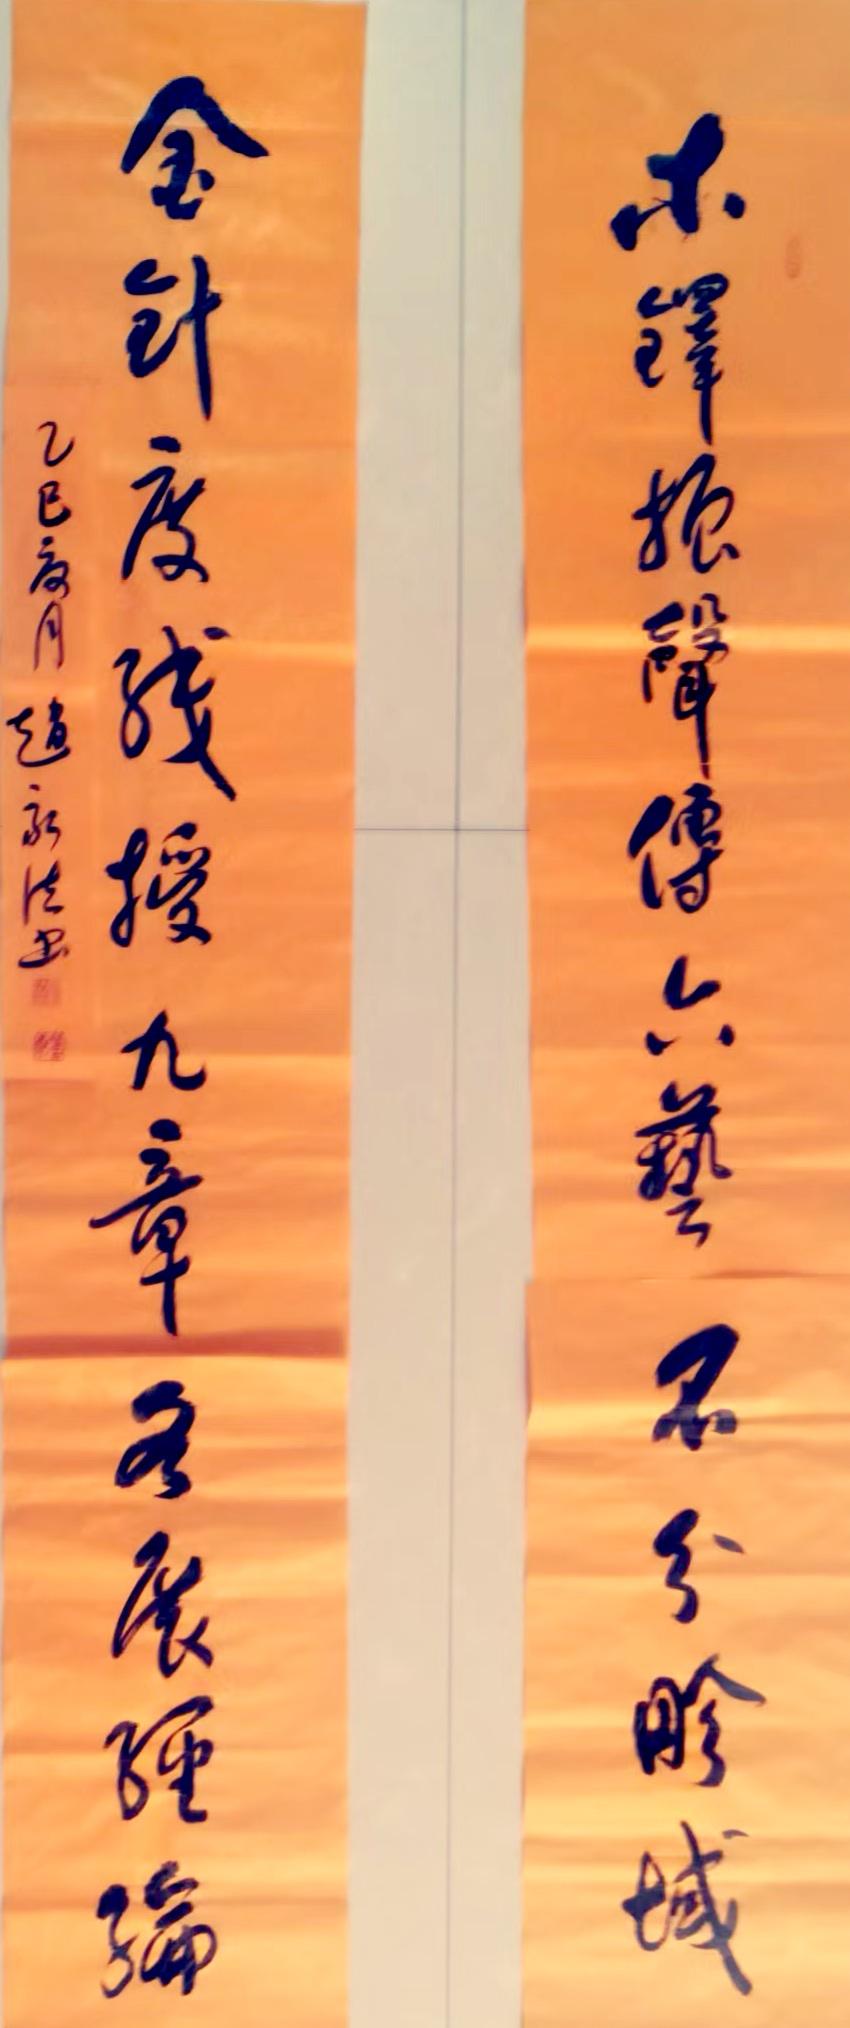 木鐸振聲傳六藝不分畛域
金針度线授九章各展經綸
乙巳夏月 趙永法书